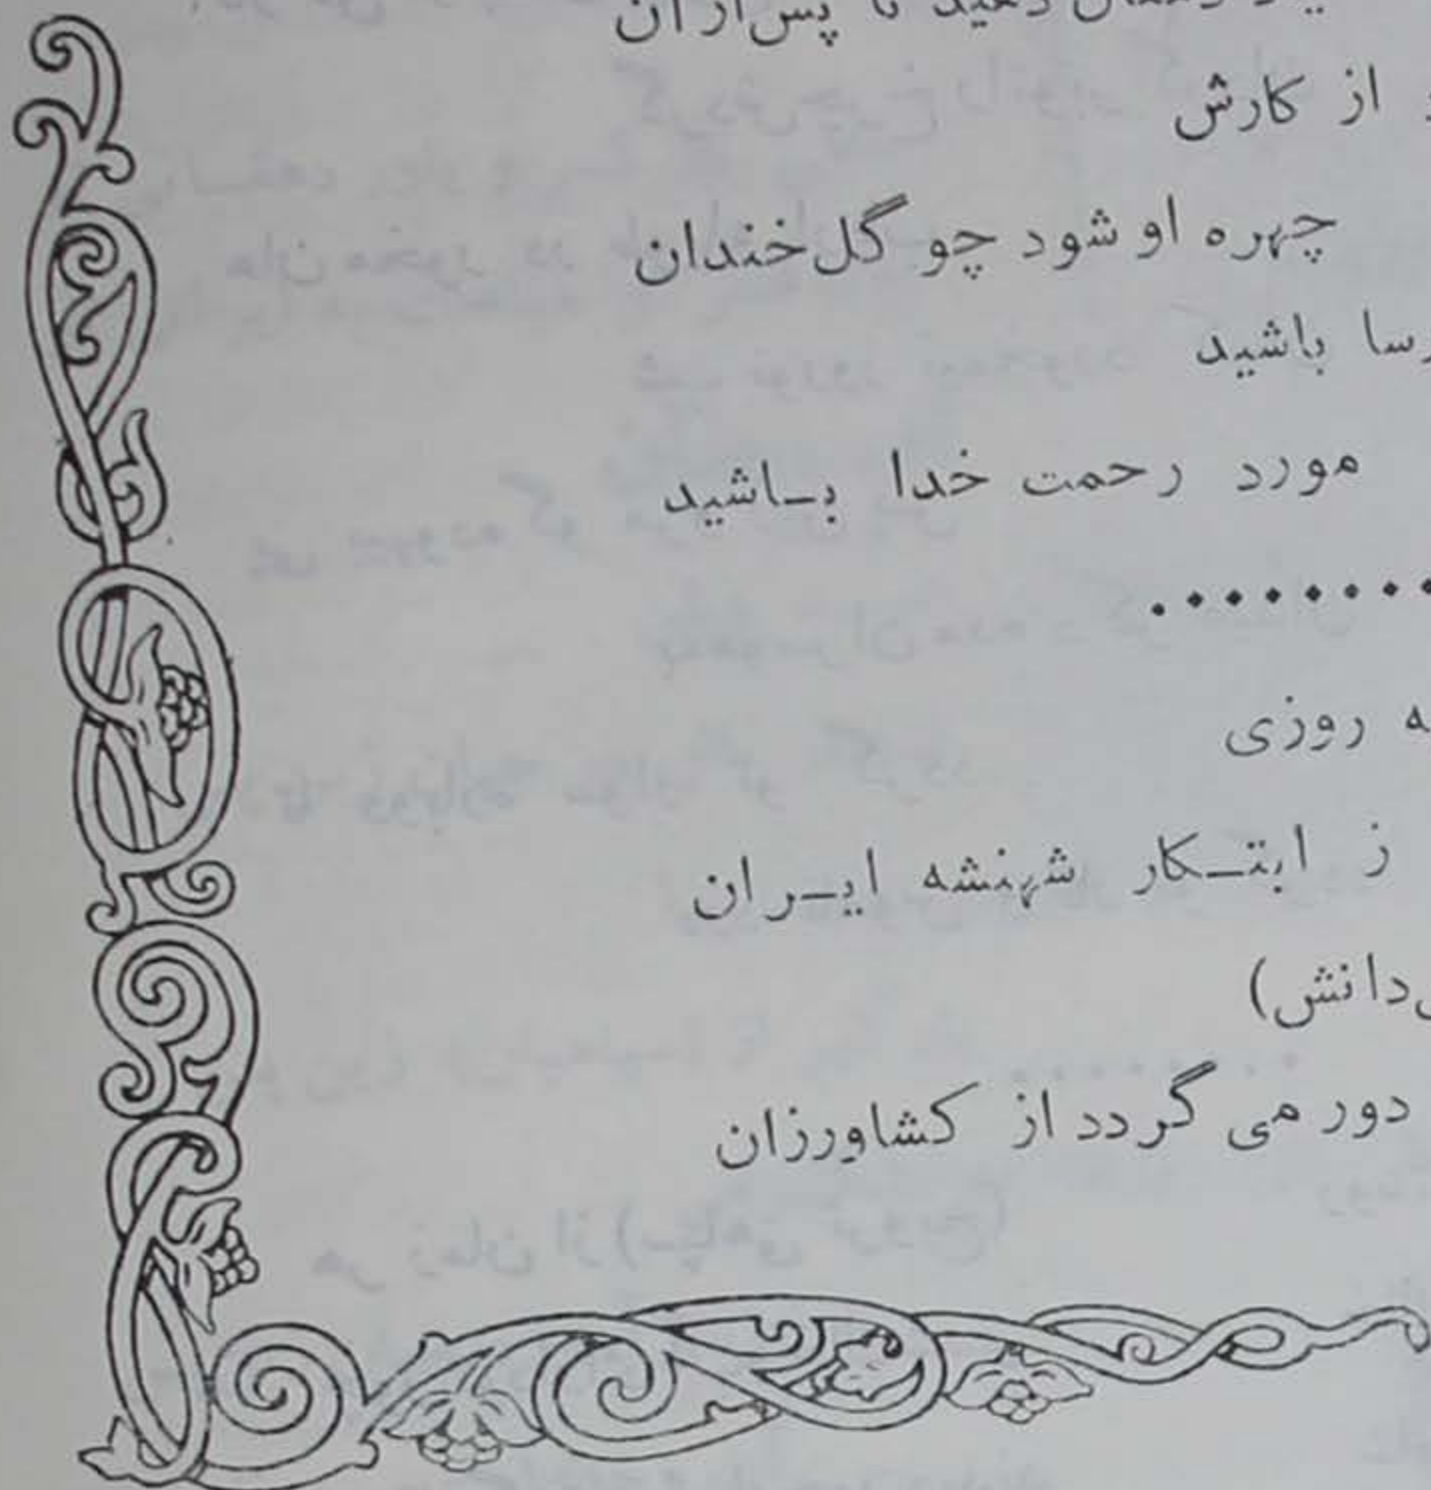 پس‌ازآن
از کارش
چهره او شود چو گل‌خندان
باشید
مورد رحمت خدا بـاشید
........
روزی
ز ابتـکار شهنشه ایـران
دانش)
دور می گردد از کشاورزان